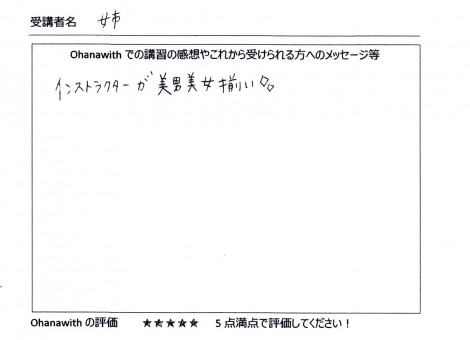 受講者名 姉
Ohanawith での講習の感想やこれから受けられる方へのメッセージ等
インストラクターが美男美女揃い◇◇
Ohanawith の評価 ★★★★★ 5点満点で評価してください！